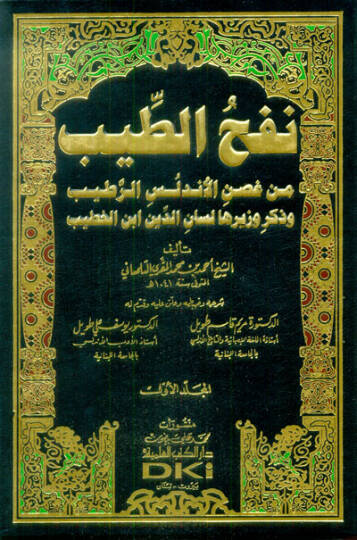 نفحُ الطِّيب
من غصن الأندلس الرَّطيب
وذكر وزيرها لسان الدّين ابن الخطيب
تأليف
الشيخ أحمد بن محمد المقري التلمساني
المتوفى سنة ١٠٤١ هـ
شرحه وضبطه وعلق عليه وقدم له
الدكتورة مريم قاسم طويل
الدكتور يوسف علي طويل
أستاذة اللغة الإسبانية والتاريخ الأندلسي
أستاذ الأدب الأندلسي
بالجامعة اللبنانية
بالجامعة اللبنانية
المجلد الأول
منشورات
محمد علي بيضون
دار الكتب العلمية
DKi
بيروت - لبنان